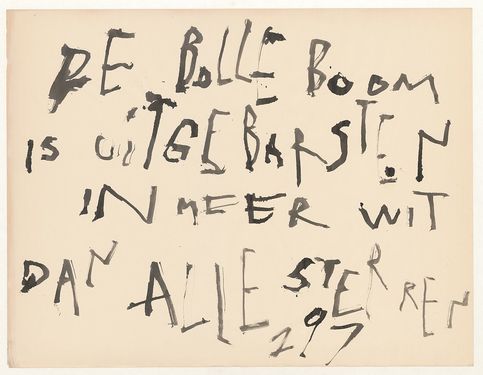 DE BOLLE BOOM
IS UITGEBARSTEN
IN MEER WIT
DAN ALLE STERREN
297